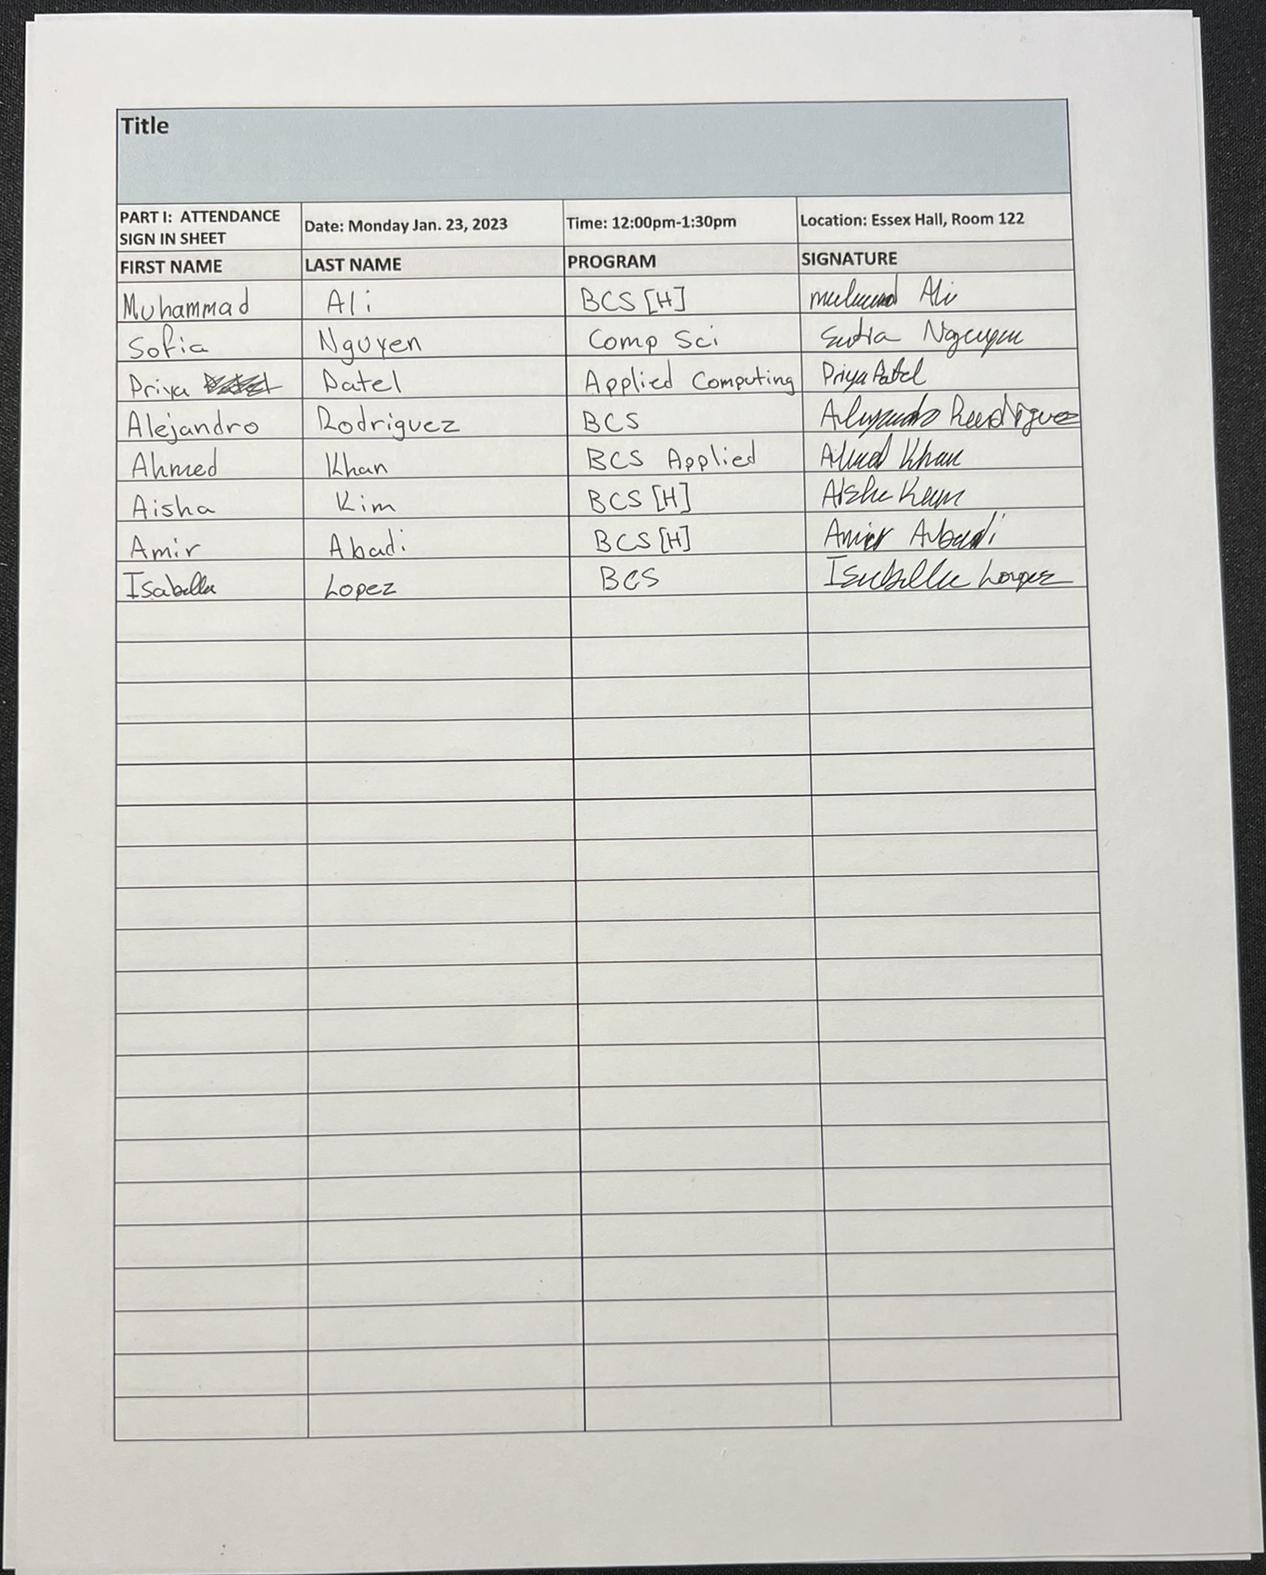 Title
PART I: ATTENDANCE
SIGN IN SHEET
Date: Monday Jan. 23, 2023
Time: 12:00pm-1:30pm
Location: Essex Hall, Room 122
FIRST NAME LAST NAME PROGRAM SIGNATURE
Muhammad Ali BCS [H] Ali
Sofia Nguyen Comp Sci Nguyen
Priya Patel Applied Computing Priya Patel
Alejandro Rodriguez BCS Alejandro Rodriguez
Ahmed Khan BCS Applied Ahmed Khan
Aisha Kim BCS [H] Aisha Kim
Amir Abadi BCS [H] Amir Abadi
Isabella Lopez BCS Isabella Lopez